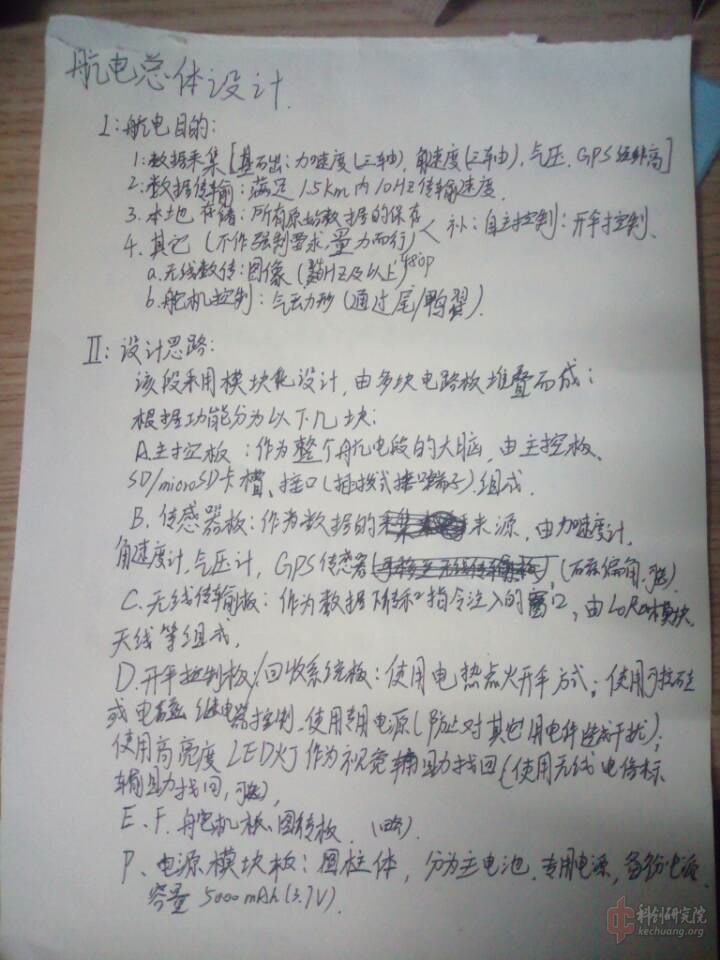 航电总体设计.
I:航电目的:
1:数据采集[基础出:加速度(三轴),角速度(三轴),气压.GPS经纬高]
2:数据传输:满足1.5km内10HZ传输速度.
3.本地存储:所有原始数据的保存
4.其它(不作强制要求,量力而行)<补:自主控制:开伞控制.
a.无线数传:图像(HZ及以上)480p
b.舵机控制:气动力形(通过尾/鸭翼).
II:设计思路:
该段采用模块化设计,由多块电路板堆叠而成;
根据功能分为以下几块:
A.主控板:作为整个航电段的大脑,由主控板、
SD/microSD卡槽、接口(插拔式接口端子).组成.
B.传感器板:作为数据的来源,由加速度计,
角速度计,气压计,GPS传感器,(磁偏角,可选)
C.无线传输板:作为数据下传和指令注入的窗口,由LoRa模块,
天线等组成,
D.开伞控制板/回收系统板:使用电热点火开伞方式;使用可控硅
或电磁继电器控制.使用专用电源(防止对其它用电件造成干扰);
使用高亮度LED灯作为视觉辅助找回{使用无线电信标
辅助找回,可选},
E.F.舵机板、图传板.(略).
P、电源模块板:圆柱体,分为主电池.专用电源,备份电源
容量5000mAh(3.7V).
科创研究院
kechuang.org